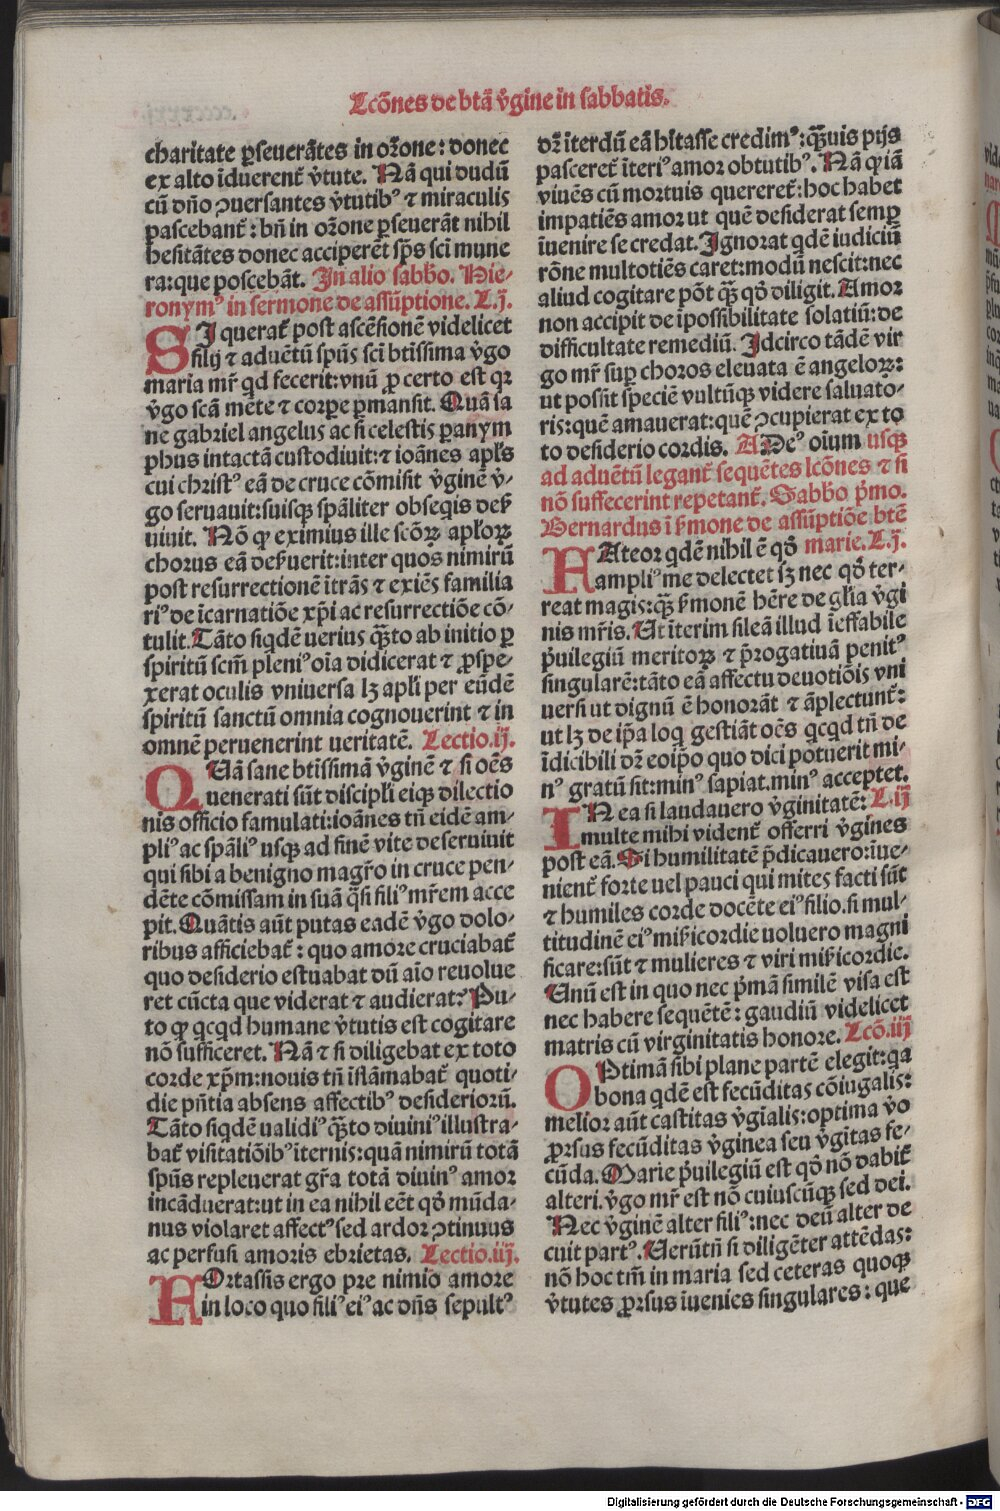 Lcões de btã v̓gine in sabbatis.
charitate ꝑseuerãtes in orōne: donec
ex alto ĩduerent̃ v̓tute. Nã qui dudũ
cũ dño ꝯuersantes v̓tutibꝰ ⁊ miraculis
pascebant̃: bñ in orōne ꝑseuerãt nihil
hesitãtes donec acciperẽt sp̃s sci mune
ra: que poscebãt. In alio sabb̃o. Hie-
ronymꝰ in sermone de assũptione. L.j.
SI querat̃ post ascẽsionẽ videlicet
filij ⁊ aduẽtũ spũs sci btĩssima v̓go
maria mr̃ qd fecerit: vnũ ꝓ certo est qꝛ
v̓go scã mẽte ⁊ corꝑe ꝑmansit. Quã sa
ne gabriel angelus ac si celestis ꝑanym
phus intactã custodiuit: ⁊ ioãnes apłs
cui christꝰ eã de cruce cõmisit v̓ginẽ v̓-
go seruauit: suisqꝫ spãliter obseqis def̃
uiuit. Nõ ꝙ eximius ille scõꝝ apłoꝝ
chorus eã def̃uerit: inter quos nimirũ
post resurrectionẽ ĩtrãs ⁊ exiẽs familia
riꝰ de ĩcarnatiõe xp̃i ac resurrectiõe cõ-
tulit. Tãto siqdẽ uerius qꝫto ab initio ꝑ
spiritũ scm̃ pleniꝰ oĩa didicerat ⁊ ꝓspe-
xerat oculis vniuersa lꝫ apłi per eũdẽ
spiritũ sanctũ omnia cognouerint ⁊ in
omnẽ peruenerint ueritatẽ. Lectio.ij.
QUã sane btĩssimã v̓ginẽ ⁊ si oẽs
uenerati sũt discipłi eiqꝫ dilectio
nis officio famulati: ioãnes tñ eidẽ am-
pliꝰ ac spãliꝰ usqꝫ ad finẽ vite deseruiuit
qui sibi a benigno magr̃o in cruce pen-
dẽte cõmissam in suã q̃si filiꝰ mr̃em acce
pit. Quãtis aũt putas eadẽ v̓go dolo-
ribus afficiebat̃: quo amore cruciabat̃
quo desiderio estuabat dũ aĩo reuolue
ret cũcta que viderat ⁊ audierat? Pu-
to ꝙ qcqd humane v̓tutis est cogitare
nõ sufficeret. Nã ⁊ si diligebat ex toto
corde xp̃m: nouis tñ ĩflãmabat̃ quoti-
die pñtia absens affectibꝰ desideriorũ.
Tãto siqdẽ ualidiꝰ qꝫto diuiniꝰ illustra-
bat̃ visitatiõibꝰ ĩternis: quã nimirũ totã
spũs repleuerat gr̃a totã diuinꝰ amor
incãduerat: ut in ea nihil eẽt qõ mũda-
nus violaret affectꝰ sed ardor ꝯtinuus
ac perfusi amoris ebrietas. Lectio.iij.
FOrtassis ergo pre nimio amore
in loco quo filiꝰ eiꝰ ac dñs sepultꝰ
dr̃ iterdũ eã hĩtasse credimꝰ: qꝫuis pijs
pasceret̃ ĩteriꝰ amor obtutibꝰ. Nã qꝛ iã
viuẽs cũ mortuis quereret̃: hoc habet
impatiẽs amor ut quẽ desiderat semꝑ
ĩuenire se credat. Ignorat qdẽ iudiciũ
rõne multotiẽs caret: modũ nescit: nec
aliud cogitare põt qꝫ qõ diligit. Amor
non accipit de ĩpossibilitate solatiũ: de
difficultate remediũ. Idcirco tãdẽ vir
go mr̃ suꝑ choros eleuata ẽ angeloꝝ:
ut possit speciẽ vultũqꝫ videre saluato-
ris: quẽ amauerat: quẽ ꝯcupierat ex to
to desiderio cordis. A Deꝰ oĩum usqꝫ
ad aduẽtũ legant̃ sequẽtes lcõnes ⁊ si
nõ suffecerint repetant̃. Sabb̃o p̃mo.
Bernardus ĩ f̃mone de assũptiõe btẽ
FAteor qdẽ nihil ẽ qõ marie. L.j.
ampliꝰ me delectet sꝫ nec qõ ter-
reat magis: qꝫ f̃monẽ hẽre de glĩa v̓gi
nis mr̃is. At ĩterim sileã illud ĩeffabile
p̃uilegiũ meritoꝝ ⁊ p̃rogatiuã penitꝰ
singularẽ: tãto eã affectu deuotiõis vni
uersi ut dignũ ẽ honorãt ⁊ ãplectunt̃:
ut lꝫ de ip̃a loq gestiãt oẽs qcqd tñ de
ĩdicibili dr̃ eoip̃o quo dici potuerit mi-
nꝰ gratũ sit: minꝰ sapiat. minꝰ acceptet.
IN ea si laudauero v̓ginitatẽ: L.ij
multe mihi vident̃ offerri v̓gines
post eã. Si humilitatẽ p̃dicauero: ĩue-
nient̃ forte uel pauci qui mites facti sũt
⁊ humiles corde docẽte eiꝰ filio. si mul-
titudinẽ eiꝰ mif̃icordie uoluero magni
ficare: sũt ⁊ mulieres ⁊ viri mif̃icordie.
Vnũ est in quo nec p̃mã similẽ visa est
nec habere sequẽtẽ: gaudiũ videlicet
matris cũ virginitatis honore. Lcõ.iij
OPtimã sibi plane partẽ elegit: qa
bona qdẽ est fecũditas cõiugalis:
melior aũt castitas v̓gĩalis: optima v̓o
ꝓrsus fecũditas v̓ginea seu v̓gĩtas fe-
cũda. Marie p̃uilegiũ est qõ nõ dabit̃
alteri. v̓go mr̃ est nõ cuiuscũqꝫ sed dei.
Nec v̓ginẽ alter filiꝰ: nec deũ alter de
cuit partꝰ. Uerũtñ si diligẽter attẽdas:
nõ hoc tm̃ in maria sed ceteras quoqꝫ
v̓tutes ꝓrsus ĩuenies singulares: que
Digitalisierung gefördert durch die Deutsche Forschungsgemeinschaft - DFG